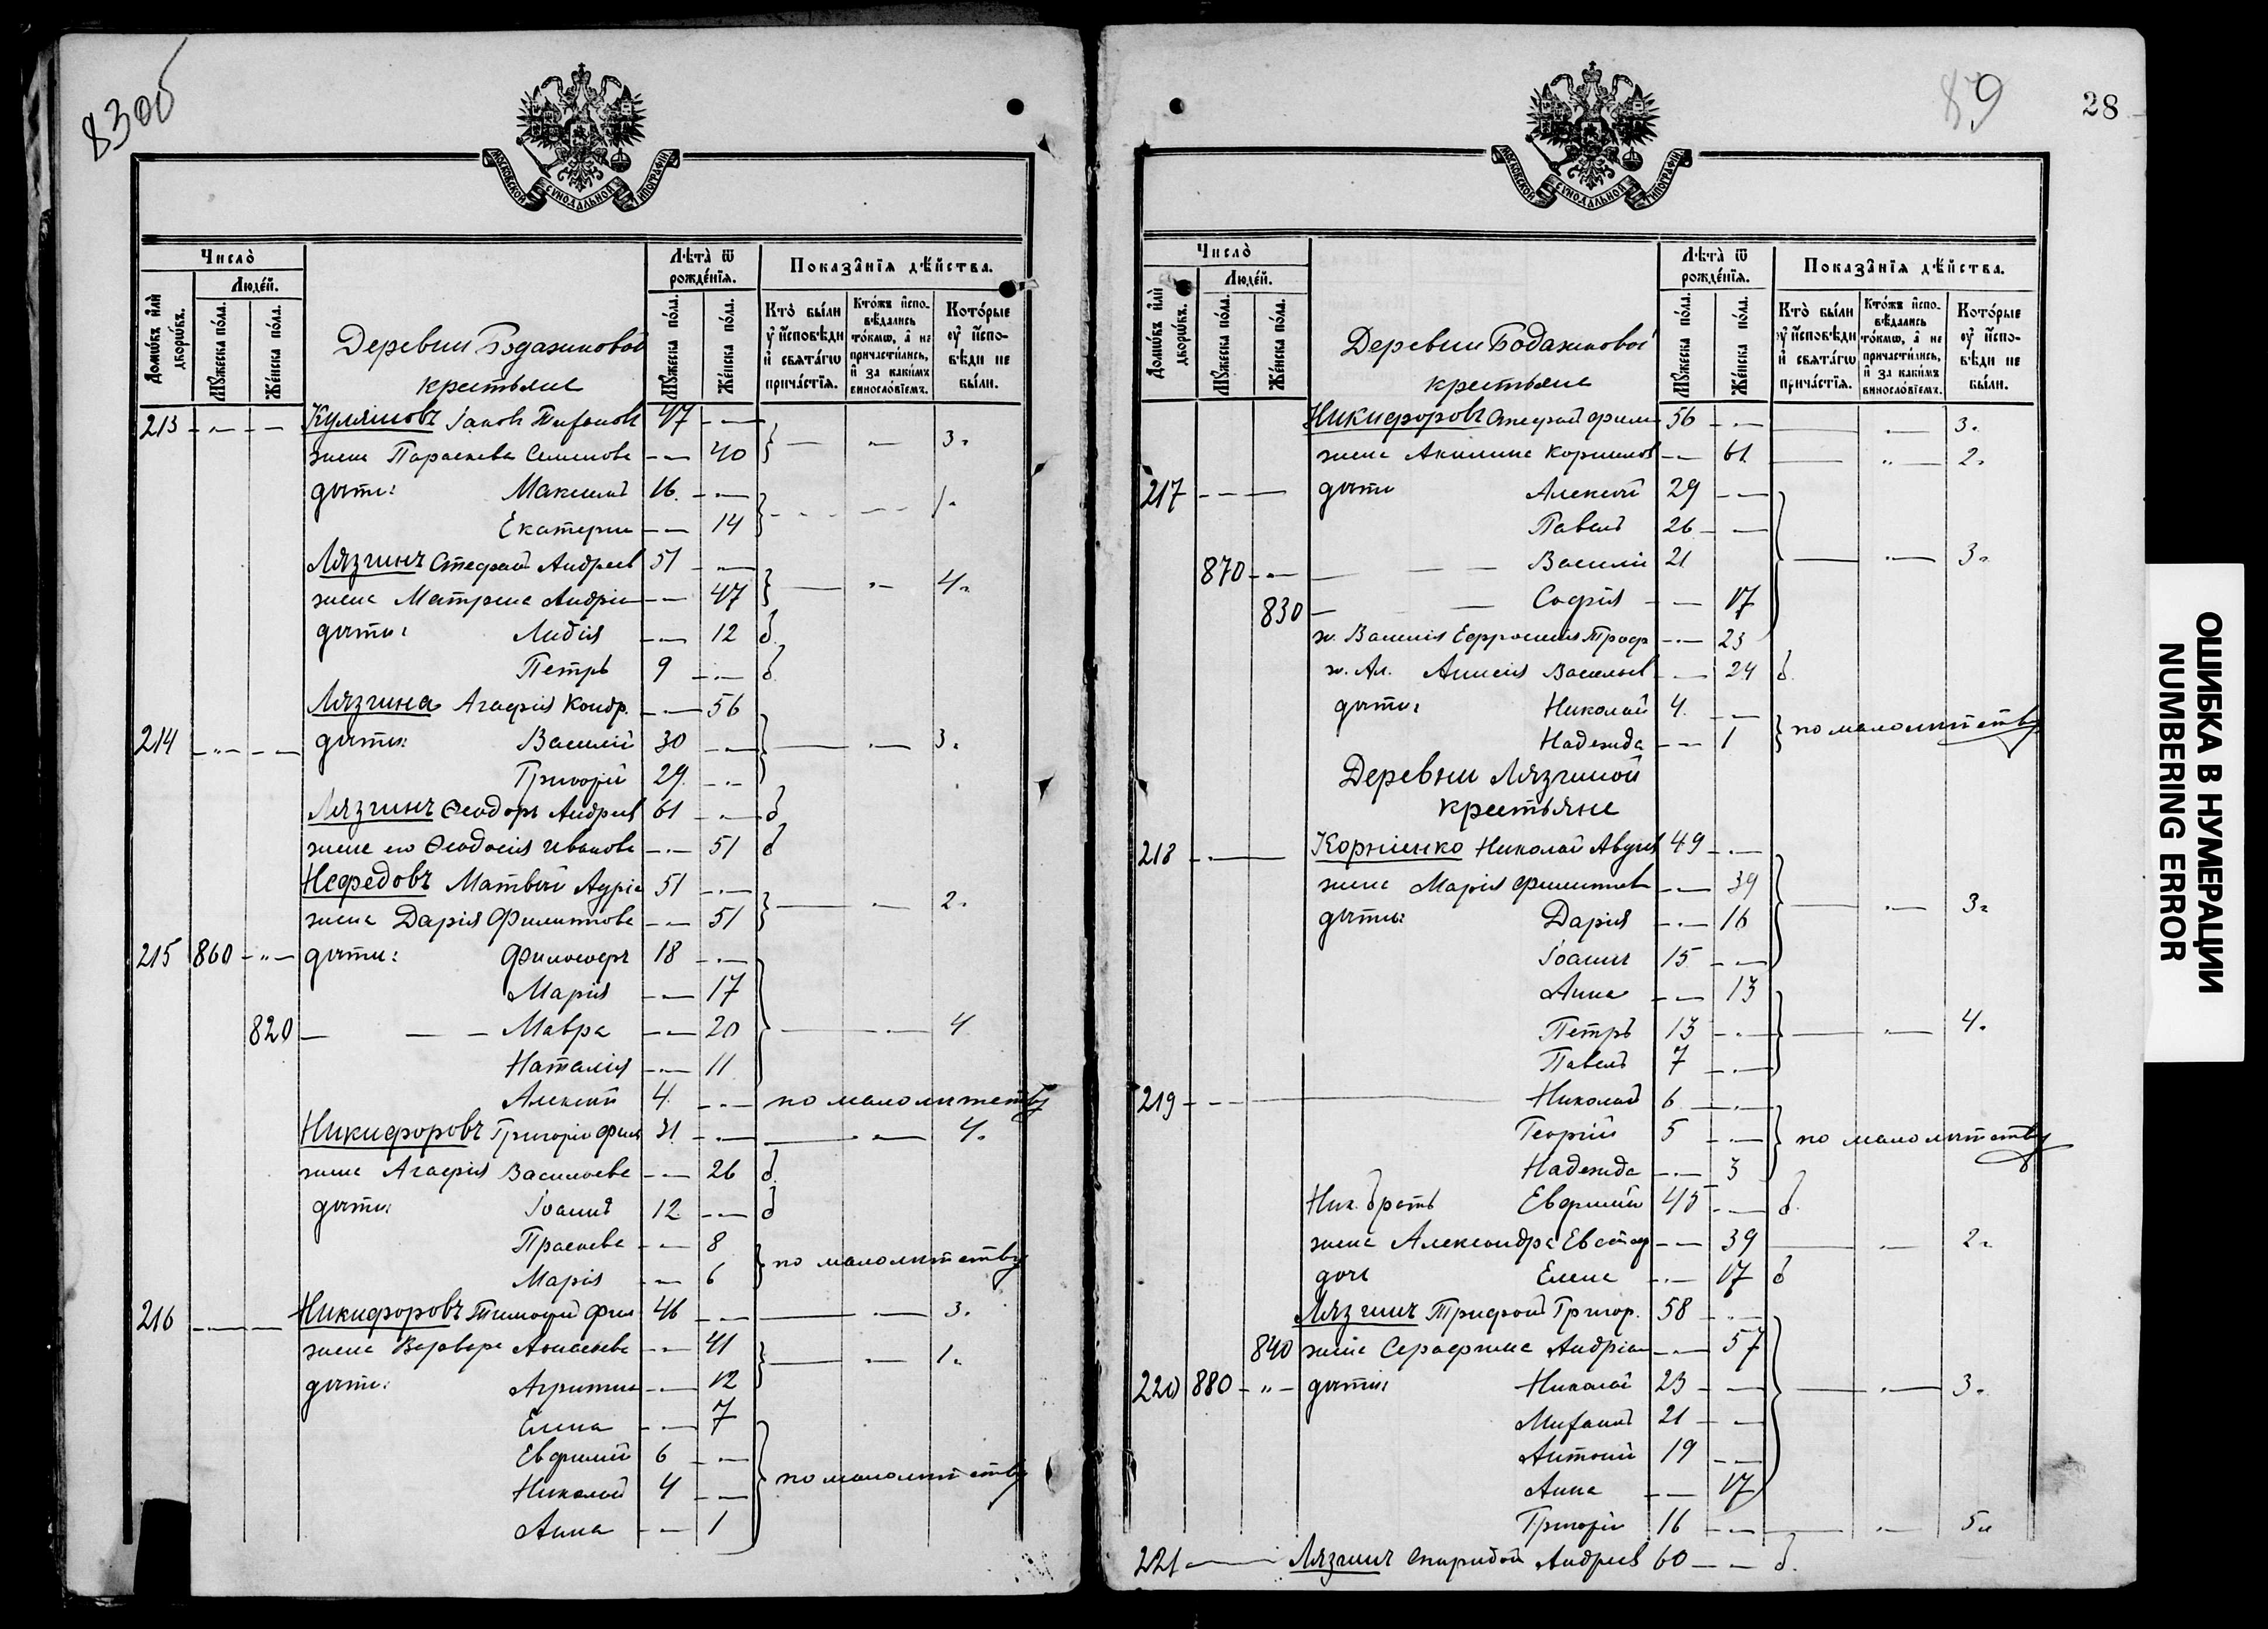 83об
МОСКОВСКОЙ СѴНОДАЛЬНОЙ ТИПОГРАФІИ
Число̀
Людей.
Домѡвъ и҆лѝ дворѡвъ.
Мꙋжеска по́ла.
Же́нска по́ла.
Деревни Бодажковой
крестьяне
Лѣта̀ ѿ рожде́нїѧ.
Мꙋжеска по́ла.
Же́нска по́ла.
Показа̑нїѧ дѣ́йства.
Кто̀ бы́ли ᲂу҆ и҆сповѣди и҆ свѧта́гѡ прича́стїѧ.
Кто́жъ и҆сповѣдались то́кмѡ, а҆ не причасти́лись, и҆ за каки́мъ винословїемъ.
Кото́рые ᲂу҆ и҆сповѣди не бы́ли.
213 Куляшовъ Іаковъ 47 3.
жена Параскева Семенова 40
дѣти: Максимъ 16 1.
Екатерина 14
Лязгинъ Стефанъ Андреев 51 4.
жена Матрона Андріан 47
дѣти: Лидія 12 δ
Петръ 9 δ
Лязгина Агафія Кондр. 56
214 дѣти: Василій 30 3.
Григорій 29
Лязгинъ Ѳеодоръ Андреев 61 δ
жена его Ѳеодосія Иванова 51 δ
Нефедовъ Матвѣй 51 2.
жена Дарія Филиппова 51
215 860 дѣти: Философъ 18
Марія 17
820 Мавра 20 4
Наталія 11
Алексѣй 4 по малолѣтству
Никифоровъ Григорій Фил 31 4.
жена Агафія Васильева 26 δ
дѣти: Іоаннъ 12 δ
Праскева 8 по малолѣтству
Марія 6
216 Никифоровъ Тимофей Фил 46 3.
жена Варвара 41 1.
дѣти: Агрипина 12
Елена 7
Евфимій 6 по малолѣтству
Николай 4
Анна 1
89 28
МОСКОВСКОЙ СѴНОДАЛЬНОЙ ТИПОГРАФІИ
Число̀
Людей.
Домѡвъ и҆лѝ дворѡвъ.
Мꙋжеска по́ла.
Же́нска по́ла.
Деревни Бодажковой
крестьяне
Лѣта̀ ѿ рожде́нїѧ.
Мꙋжеска по́ла.
Же́нска по́ла.
Показа̑нїѧ дѣ́йства.
Кто̀ бы́ли ᲂу҆ и҆сповѣди и҆ свѧта́гѡ прича́стїѧ.
Кто́жъ и҆сповѣдались то́кмѡ, а҆ не причасти́лись, и҆ за каки́мъ винословїемъ.
Кото́рые ᲂу҆ и҆сповѣди не бы́ли.
Никифоровъ Стефанъ Филип 56 3.
жена Акилина Корнилов 61 2.
217 дѣти Алексѣй 29
Павелъ 26
870 Василій 21 3.
830 Софія 17
ж. Василія Ефросинія Троф 23
ж. Ал. Анисія Васильев 24 δ
дѣти: Николай 4 по малолѣтству
Надежда 1
Деревни Лязгиной
крестьяне
218 Корніенко Николай 49
жена Марія Филиппов 39
дѣти: Дарія 16 3.
Іоаннъ 15
Анна 13
Петръ 13 4.
Павелъ 7
219 Николай 6
Георгій 5 по малолѣтству
Надежда 3
Ник. братъ Евфимій 45 δ
жена Александра Евстаф 39 2.
дочь Елена 17 δ
Лязгинъ Трифонъ Григор. 58
840 жена Серафима Андріан 57
220 880 дѣти: Николай 23 3.
Миѳанъ 21
Антоній 19
Анна 17
Григорій 16 5.
221 Лязгинъ Спиридонъ Андреев 60 δ
ОШИБКА В НУМЕРАЦИИ
NUMBERING ERROR